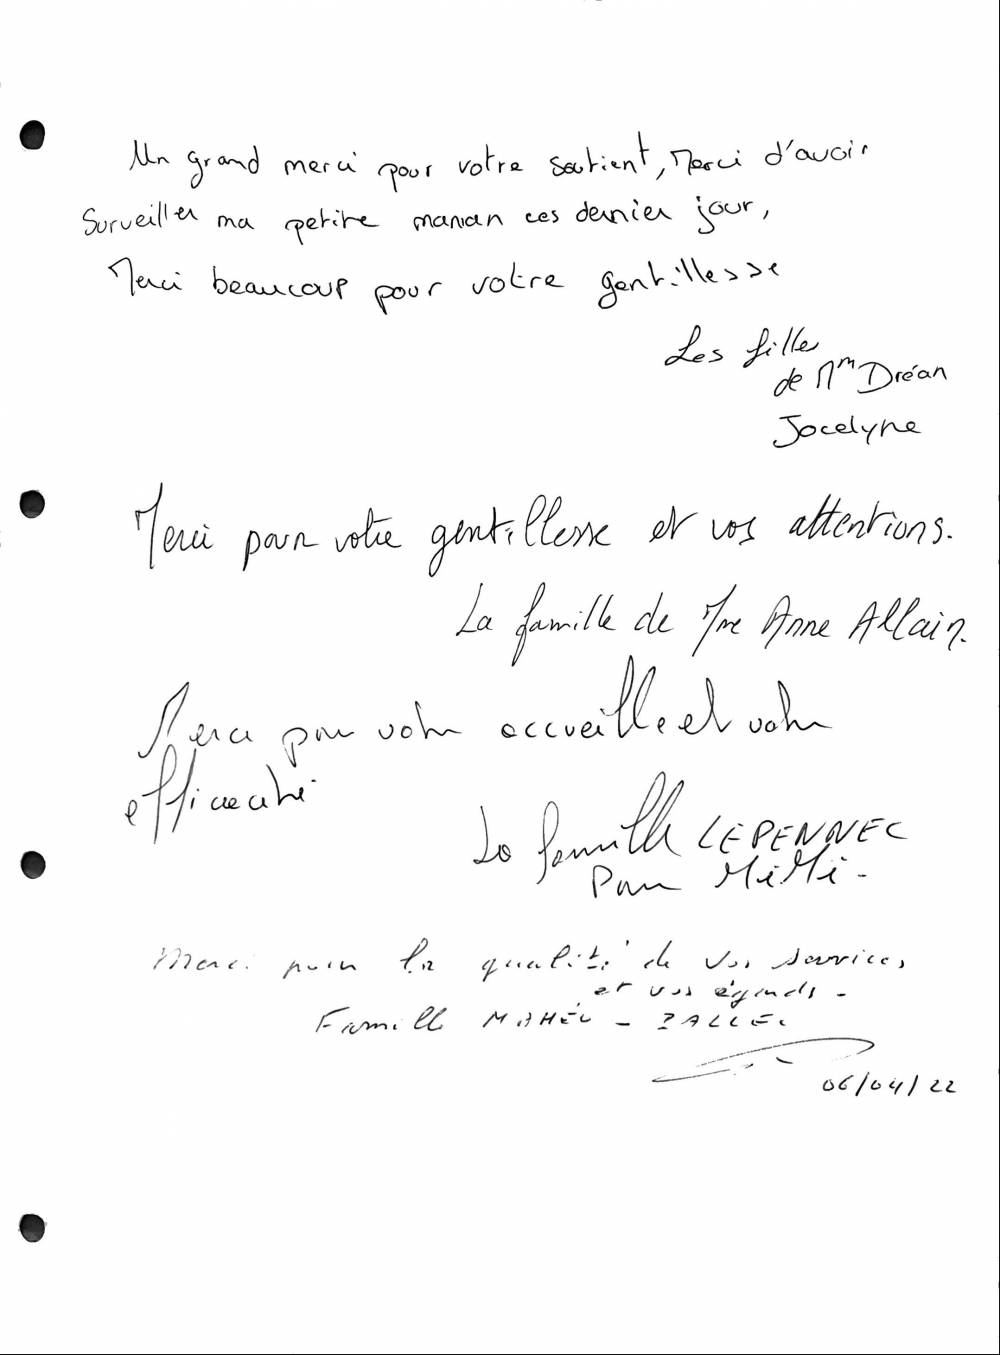 Un grand merci pour votre soutient, Merci d'avoir
Surveiller ma petite maman ces dernier jour,
Merci beaucoup pour votre gentillesse
Les fille
de Mm Dréan
Jocelyne
Merci pour votre gentillesse et vos attentions.
La famille de Mme Anne Allain.
Merci pour votre accueille et votre
efficacité
La famille LEPENNEC
Pour MiMi -
Merci pour la qualité de vos services
et vos égards -
Famille MAHÉU -
06/04/22